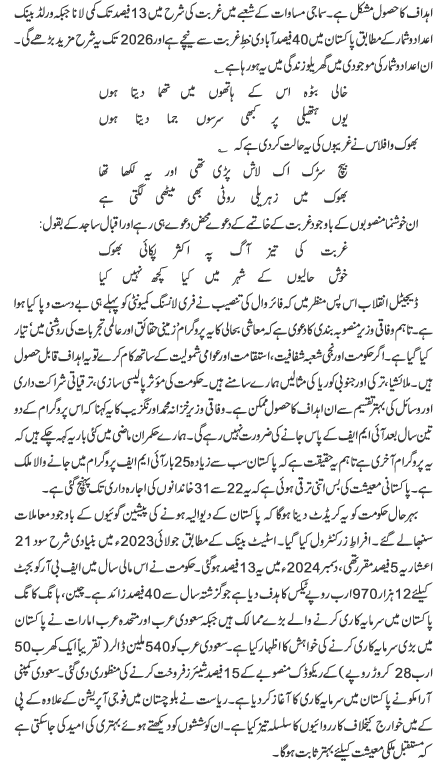 اہداف کا حصول مشکل ہے۔ سماجی مساوات کے شعبے میں غربت کی شرح میں 13 فیصد تک کمی لانا جبکہ ورلڈ بینک
اعداد و شمار کے مطابق پاکستان میں 40 فیصد آبادی خط غربت سے نیچے ہے اور 2026 تک یہ شرح مزید بڑھے گی۔
ان اعداد و شمار کی موجودی میں گھریلو زندگی میں یہ ہو رہا ہے ؎
خالی بٹوہ اس کے ہاتھوں میں تھما دیتا ہوں
یوں ہتھیلی پر کبھی سرسوں جما دیتا ہوں
بھوک و افلاس نے غریبوں کی یہ حالت کر دی ہے کہ ؎
بیچ سڑک اک لاش پڑی تھی اور یہ لکھا تھا
بھوک میں زہریلی روٹی بھی میٹھی لگتی ہے
ان خوشنما منصوبوں کے باوجود غربت کے خاتمے کے دعوے محض دعوے ہی رہے اور اقبال ساجد کے بقول:
غربت کی تیز آگ پہ اکثر پکائی بھوک
خوش حالیوں کے شہر میں کیا کچھ نہیں کیا
ڈیجیٹل انقلاب اس پس منظر میں کہ فائر وال کی تنصیب نے فری لانسنگ کمیونٹی کو پہلے ہی بے دست و پا کیا ہوا
ہے۔ تاہم وفاقی وزیر منصوبہ بندی کا دعویٰ ہے کہ معاشی بحالی کا یہ پروگرام ’زمینی حقائق اور عالمی تجربات کی روشنی میں‘ تیار
کیا گیا ہے۔ اگر حکومت اور نجی شعبہ شفافیت، استقامت اور عوامی شمولیت کے ساتھ کام کرے تو یہ اہداف قابل حصول
ہیں۔ ملائشیا، ترکی اور جنوبی کوریا کی مثالیں ہمارے سامنے ہیں۔ حکومت کی مؤثر پالیسی سازی، ترقیاتی شراکت داری
اور وسائل کی بہتر تقسیم سے ان اہداف کا حصول ممکن ہے۔ وفاقی وزیر خزانہ محمد اورنگزیب کا یہ کہنا کہ اس پروگرام کے دو
تین سال بعد آئی ایم ایف کے پاس جانے کی ضرورت نہیں رہے گی۔ ہمارے حکمران ماضی میں کئی بار یہ کہہ چکے ہیں کہ
یہ پروگرام آخری ہے تاہم یہ حقیقت ہے کہ پاکستان سب سے زیادہ 25 بار آئی ایم ایف پروگرام میں جانے والا ملک
ہے۔ پاکستانی معیشت کی بس اتنی ترقی ہوئی ہے کہ یہ 22 سے 31 خاندانوں کی اجارہ داری تک پہنچ گئی ہے۔
بہر حال حکومت کو یہ کریڈٹ دینا ہوگا کہ پاکستان کے دیوالیہ ہونے کی پیشین گوئیوں کے باوجود معاملات
سنبھالے گئے۔ افراط زر کنٹرول کیا گیا۔ اسٹیٹ بینک کے مطابق جولائی 2023ء میں بنیادی شرح سود 21
اعشاریہ 5 فیصد مقرر تھی، دسمبر 2024ء میں یہ 13 فیصد ہو گئی۔ حکومت نے اس مالی سال میں ایف بی آر کو بجٹ
کیلئے 12 ہزار 970 ارب روپے ٹیکس کا ہدف دیا ہے جو گزشتہ سال سے 40 فیصد زائد ہے۔ چین، ہانگ کانگ
پاکستان میں سرمایہ کاری کرنے والے بڑے ممالک ہیں جبکہ سعودی عرب اور متحدہ عرب امارات نے پاکستان
میں بڑی سرمایہ کاری کرنے کی خواہش کا اظہار کیا ہے۔ سعودی عرب کو 540 ملین ڈالر (تقریباً ایک کھرب 50
ارب 28 کروڑ روپے) کے ریکوڈک منصوبے کے 15 فیصد شیئرز فروخت کرنے کی منظوری دی گئی۔ سعودی کمپنی
آرامکو نے پاکستان میں سرمایہ کاری کا آغاز کر دیا ہے۔ ریاست نے بلوچستان میں فوجی آپریشن کے علاوہ کے پی
کے میں خوارج کیخلاف کارروائیوں کا سلسلہ تیز کیا ہے۔ ان کوششوں کو دیکھتے ہوئے بہتری کی امید کی جا سکتی ہے
کہ مستقبل ملکی معیشت کیلئے بہتر ثابت ہوگا۔